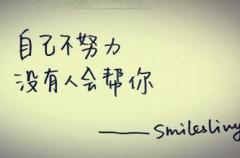 自己不努力
没有人会帮你
——Smilesliny